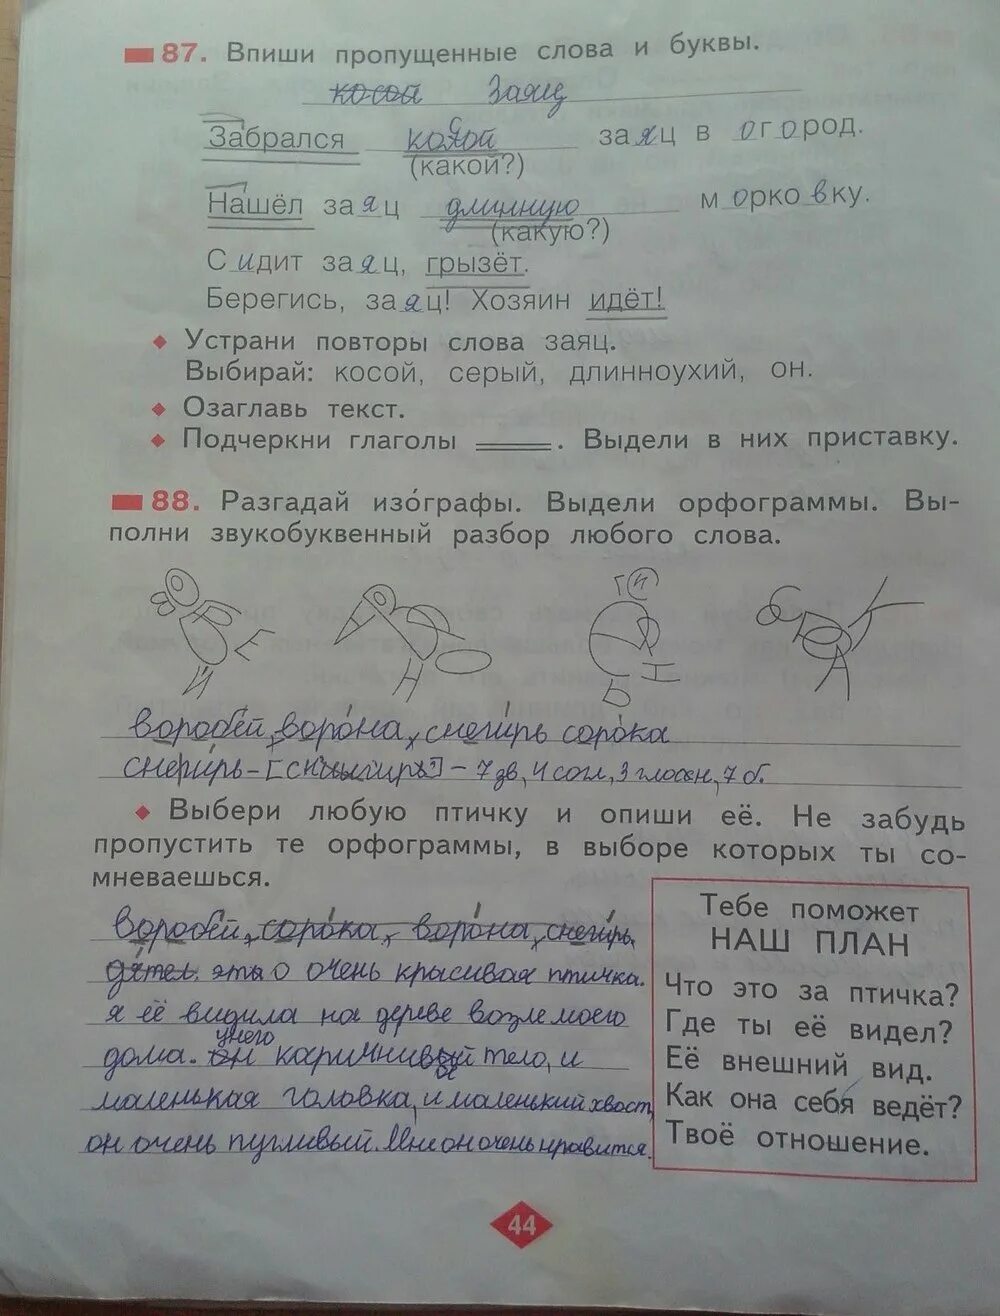 87. Впиши пропущенные слова и буквы.
косой Заяц
Забрался косой заяц в огород.
(какой?)
Нашёл заяц длинную морковку.
(какую?)
Сидит заяц, грызёт.
Берегись, заяц! Хозяин идёт!
Устрани повторы слова заяц.
Выбирай: косой, серый, длинноухий, он.
Озаглавь текст.
Подчеркни глаголы ____. Выдели в них приставку.
88. Разгадай изо́графы. Выдели орфограммы. Вы-
полни звукобуквенный разбор любого слова.
воробей, воро́на, снеги́рь соро́ка
снеги́рь - 7 зв, 4 согл, 3 гласн, 7 б.
Выбери любую птичку и опиши её. Не забудь
пропустить те орфограммы, в выборе которых ты со-
мневаешься.
воробей, соро́ка, воро́на, снеги́рь
дятел. это о очень красивая птичка.
я её видила на дереве возле моего
у него
дома. он каричнивый тело, и
маленькая головка, и маленький хвост,
он очень пугливый. Мне он очень нравится.
Тебе поможет
НАШ ПЛАН
Что это за птичка?
Где ты её видел?
Её внешний вид.
Как она себя ведёт?
Твоё отношение.
44